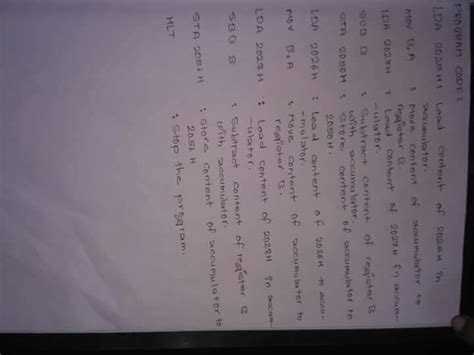 PROGRAM CODE:
LDA 2025H : Load content of 2025H in
accumulator.
MOV B, A : Move content of accumulator to
register B.
LDA 2027H : Load content of 2027H in accum-
-ulator.
SUB B : Subtract content of register B
with accumulator.
STA 2050H : Store content of accumulator to
2050H.
LDA 2026H : Load content of 2026H to accu-
-mulator.
MOV B, A : Move content of accumulator to
register B.
LDA 2028H : Load content of 2028H in accum-
-ulator.
SBB B : Subtract content of register B
with accumulator.
STA 2051H : Store content of accumulator to
2051H
HLT : Stop the program.